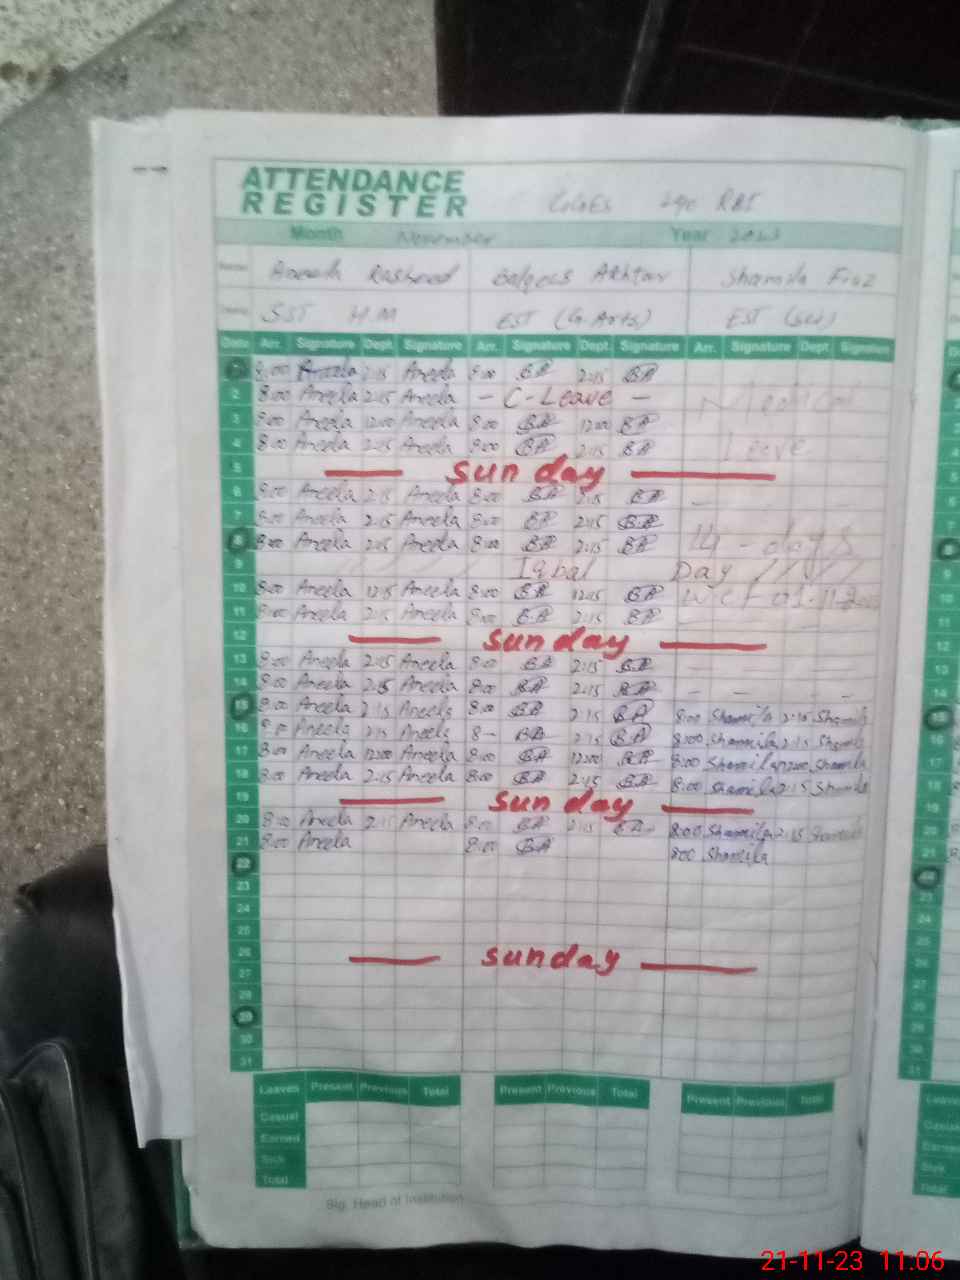 ATTENDANCE
REGISTER
Month November Year 2023
Aneela Rasheed Balqees Akhtar Shamila Fiaz
SST H.M EST (G.Arts) EST (Sci)
Date Arr. Signature Dept. Signature Arr. Signature Dept. Signature Arr. Signature Dept Signature
1 8:00 Aneela 2:15 Aneela 8:00 BA 2:15 BA
2 8:00 Aneela 2:15 Aneela - C-Leave - Medical
3 8:00 Aneela 12:00 Aneela 8:00 BA 12:00 BA
4 8:00 Aneela 2:15 Aneela 8:00 BA 2:15 BA Leave
5 sunday
6 8:00 Aneela 2:15 Aneela 8:00 BA 2:15 BA
7 8:00 Aneela 2:15 Aneela 8:00 BA 2:15 BA
8 8:00 Aneela 2:15 Aneela 8:00 BA 2:15 BA 14 - days
9 Iqbal Day
10 8:00 Aneela 12:15 Aneela 8:00 BA 12:15 BA
11 8:00 Aneela 2:15 Aneela 8:00 BA 2:15 BA
12 sunday
13 8:00 Aneela 2:15 Aneela 8:00 BA 2:15 BA
14 8:00 Aneela 2:15 Aneela 8:00 BA 2:15 BA - - - -
15 8:00 Aneela 2:15 Aneela 8:00 BA 2:15 BA 8:00 Shamila 2:15 Shamila
16 8:00 Aneela 2:15 Aneela 8- BA 2:15 BA 8:00 Shamila 2:15 Shamila
17 8:00 Aneela 12:00 Aneela 8:00 BA 12:00 BA 8:00 Shamila 12:00 Shamila
18 8:00 Aneela 2:15 Aneela 8:00 BA 2:15 BA 8:00 Shamila 2:15 Shamila
19 sunday
20 8:00 Aneela 2:15 Aneela 8:00 BA 2:15 BA 8:00 Shamila 2:15 Shamila
21 8:00 Aneela 8:00 BA 8:00 Shamila
22
23
24
25
26 sunday
27
28
29
30
31
Leaves Present Previous Total Present Previous Total Present Previous Total
Casual
Earned
Sick
Total
Sig. Head of Institution
21-11-23 11.06